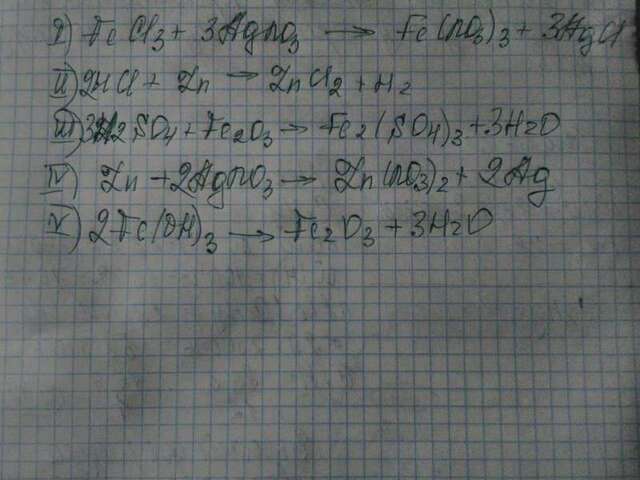 I) FeCl3 + 3AgNO3 → Fe(NO3)3 + 3AgCl
II) 2HCl + Zn → ZnCl2 + H2
III) 3H2SO4 + Fe2O3 → Fe2(SO4)3 + 3H2O
IV) Zn + 2AgNO3 → Zn(NO3)2 + 2Ag
V) 2Fe(OH)3 → Fe2O3 + 3H2O